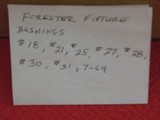 FORESTER FIXTURE
BUSHINGS
#18, #21, #25, #27, #28,
#30, #31, 7-64